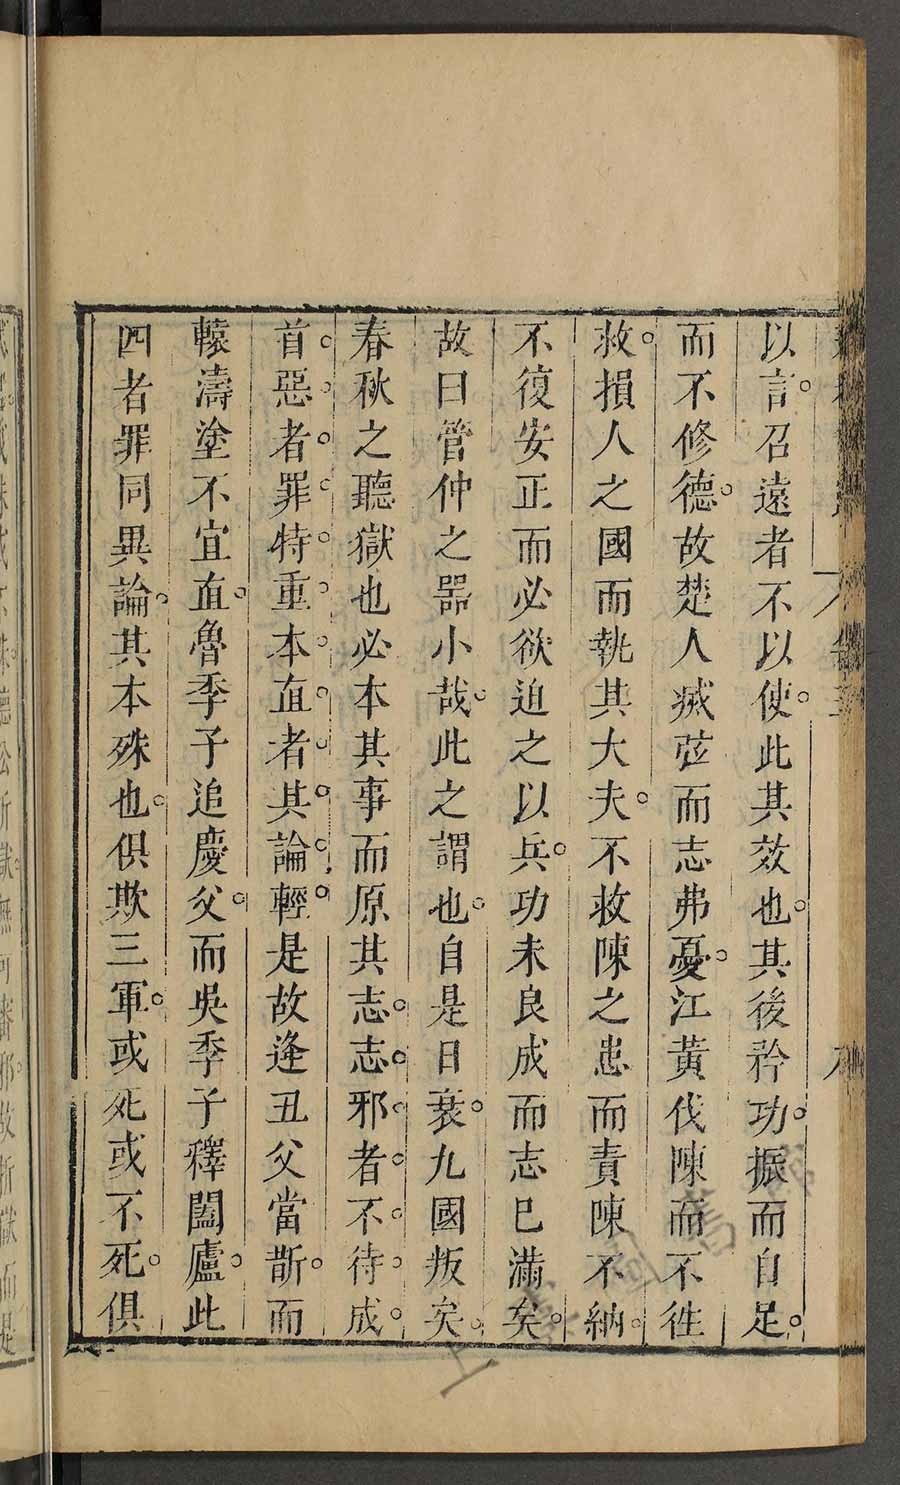 以言召遠者不以使此其效也其後矜功振而自足
而不修德故楚人滅弦而志弗憂江黃伐陳而不往
救損人之國而執其大夫不救陳之患而責陳不納
不復安正而必欲迫之以兵功未良成而志已滿矣
故曰管仲之器小哉此之謂也自是日衰九國叛矣
春秋之聽獄也必本其事而原其志志邪者不待成
首惡者罪特重本直者其論輕是故逢丑父當斮而
轅濤塗不宜直魯季子追慶父而吳季子釋闔廬此
四者罪同異論其本殊也俱欺三軍或死或不死俱